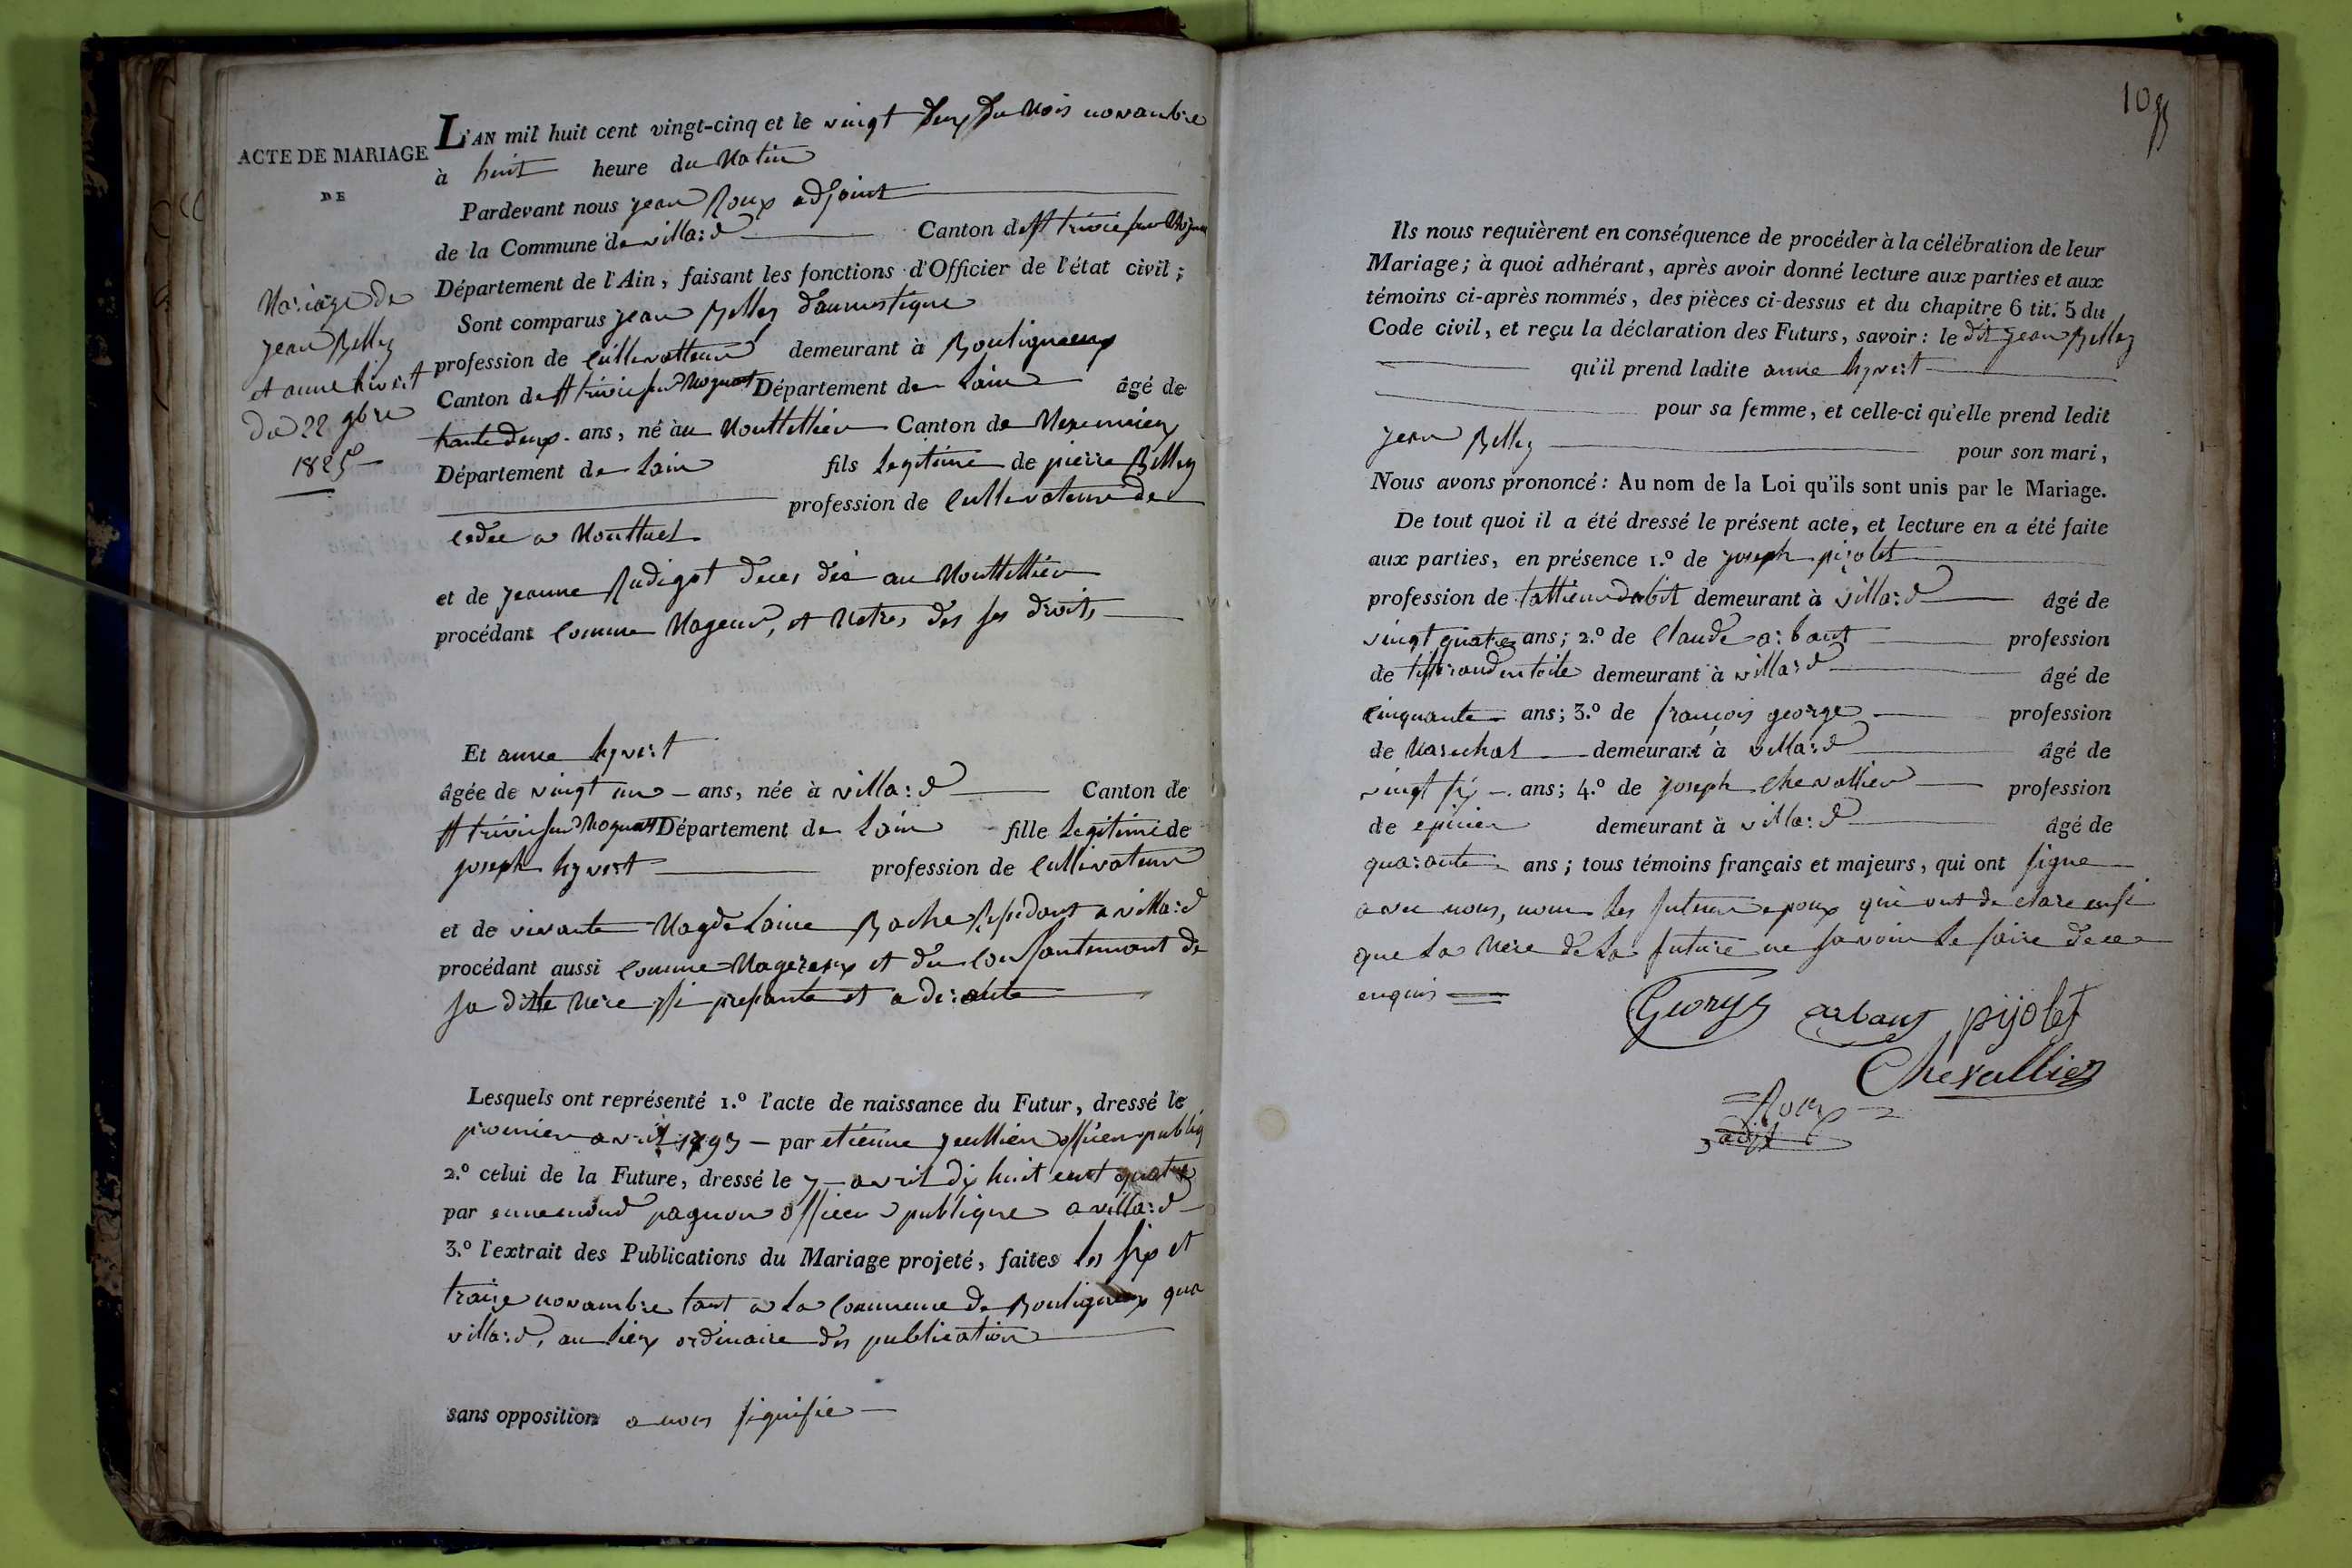 ACTE DE MARIAGE
DE
Mariage de
jean Belley
et anne hivert
du 22 9bre
1825
L'AN mil huit cent vingt-cinq et le vingt deux du Mois novambre
à huit heure du Matin
Pardevant nous jean Roux adjoint
de la Commune de villard Canton de st trivié sur Mognat
Département de l'Ain, faisant les fonctions d'Officier de l'état civil;
Sont comparus jean Belley daumestique
profession de Cultivatteur demeurant à Bouligneux
Canton de st trivié sur Mognat Département de Lain âgé de
trante deux ans, né au Monttellier Canton de Meximieux
Département de Lain fils Legitime de pierre Belley
profession de Cultivateur de
cedee a Montluel
et de jeanne Rudigot deces dée au Monttellier
procédant Comme Mageur, et Metres des ses droits
Et anne hyvert
âgée de vingt un ans, née à villard Canton de
st trivié sur Mognat Département de Lain fille Legitime de
joseph hyvert profession de Cultivateur
et de vivante Magdelaine Roche Residant a villard
procédant aussi Comme Mageure et du Consantemant de
sa ditte Mere issi presante et adirante
Lesquels ont représenté 1.º l'acte de naissance du Futur, dressé le
premier avril 1793 par etienne jeullien officier public
2.º celui de la Future, dressé le 7 avril dix huit cent quatre
par ennemond pagnon officier publique a villard
3.º l'extrait des Publications du Mariage projeté, faites les six et
traize novambre tant a la Commune de Bouligneux qua
villard, au lieux ordinaire des publication
sans opposition a nous signifié
109
Ils nous requièrent en conséquence de procéder à la célébration de leur
Mariage; à quoi adhérant, après avoir donné lecture aux parties et aux
témoins ci-après nommés, des pièces ci-dessus et du chapitre 6 tit. 5 du
Code civil, et reçu la déclaration des Futurs, savoir: le dit jean Belley
qu'il prend ladite anne hyvert
pour sa femme, et celle-ci qu'elle prend ledit
jean Belley pour son mari,
Nous avons prononcé: Au nom de la Loi qu'ils sont unis par le Mariage.
De tout quoi il a été dressé le présent acte, et lecture en a été faite
aux parties, en présence 1.º de joseph pijolet
profession de tallieur dabit demeurant à villard âgé de
vingt quatre ans; 2.º de Claude arbant profession
de tisserand en toile demeurant à villard âgé de
Cinquante ans; 3.º de françois george profession
de Marechal demeurant à villard âgé de
vingt six ans; 4.º de joseph Chevallier profession
de epicier demeurant à villard âgé de
quarante ans; tous témoins français et majeurs, qui ont signe
avec nous, non les futeur epoux qui ont de clare insi
que la Mere de la future ne savoir le faire de ce
enquis
George arbant pijolet
Chevallier
Roux
adjt